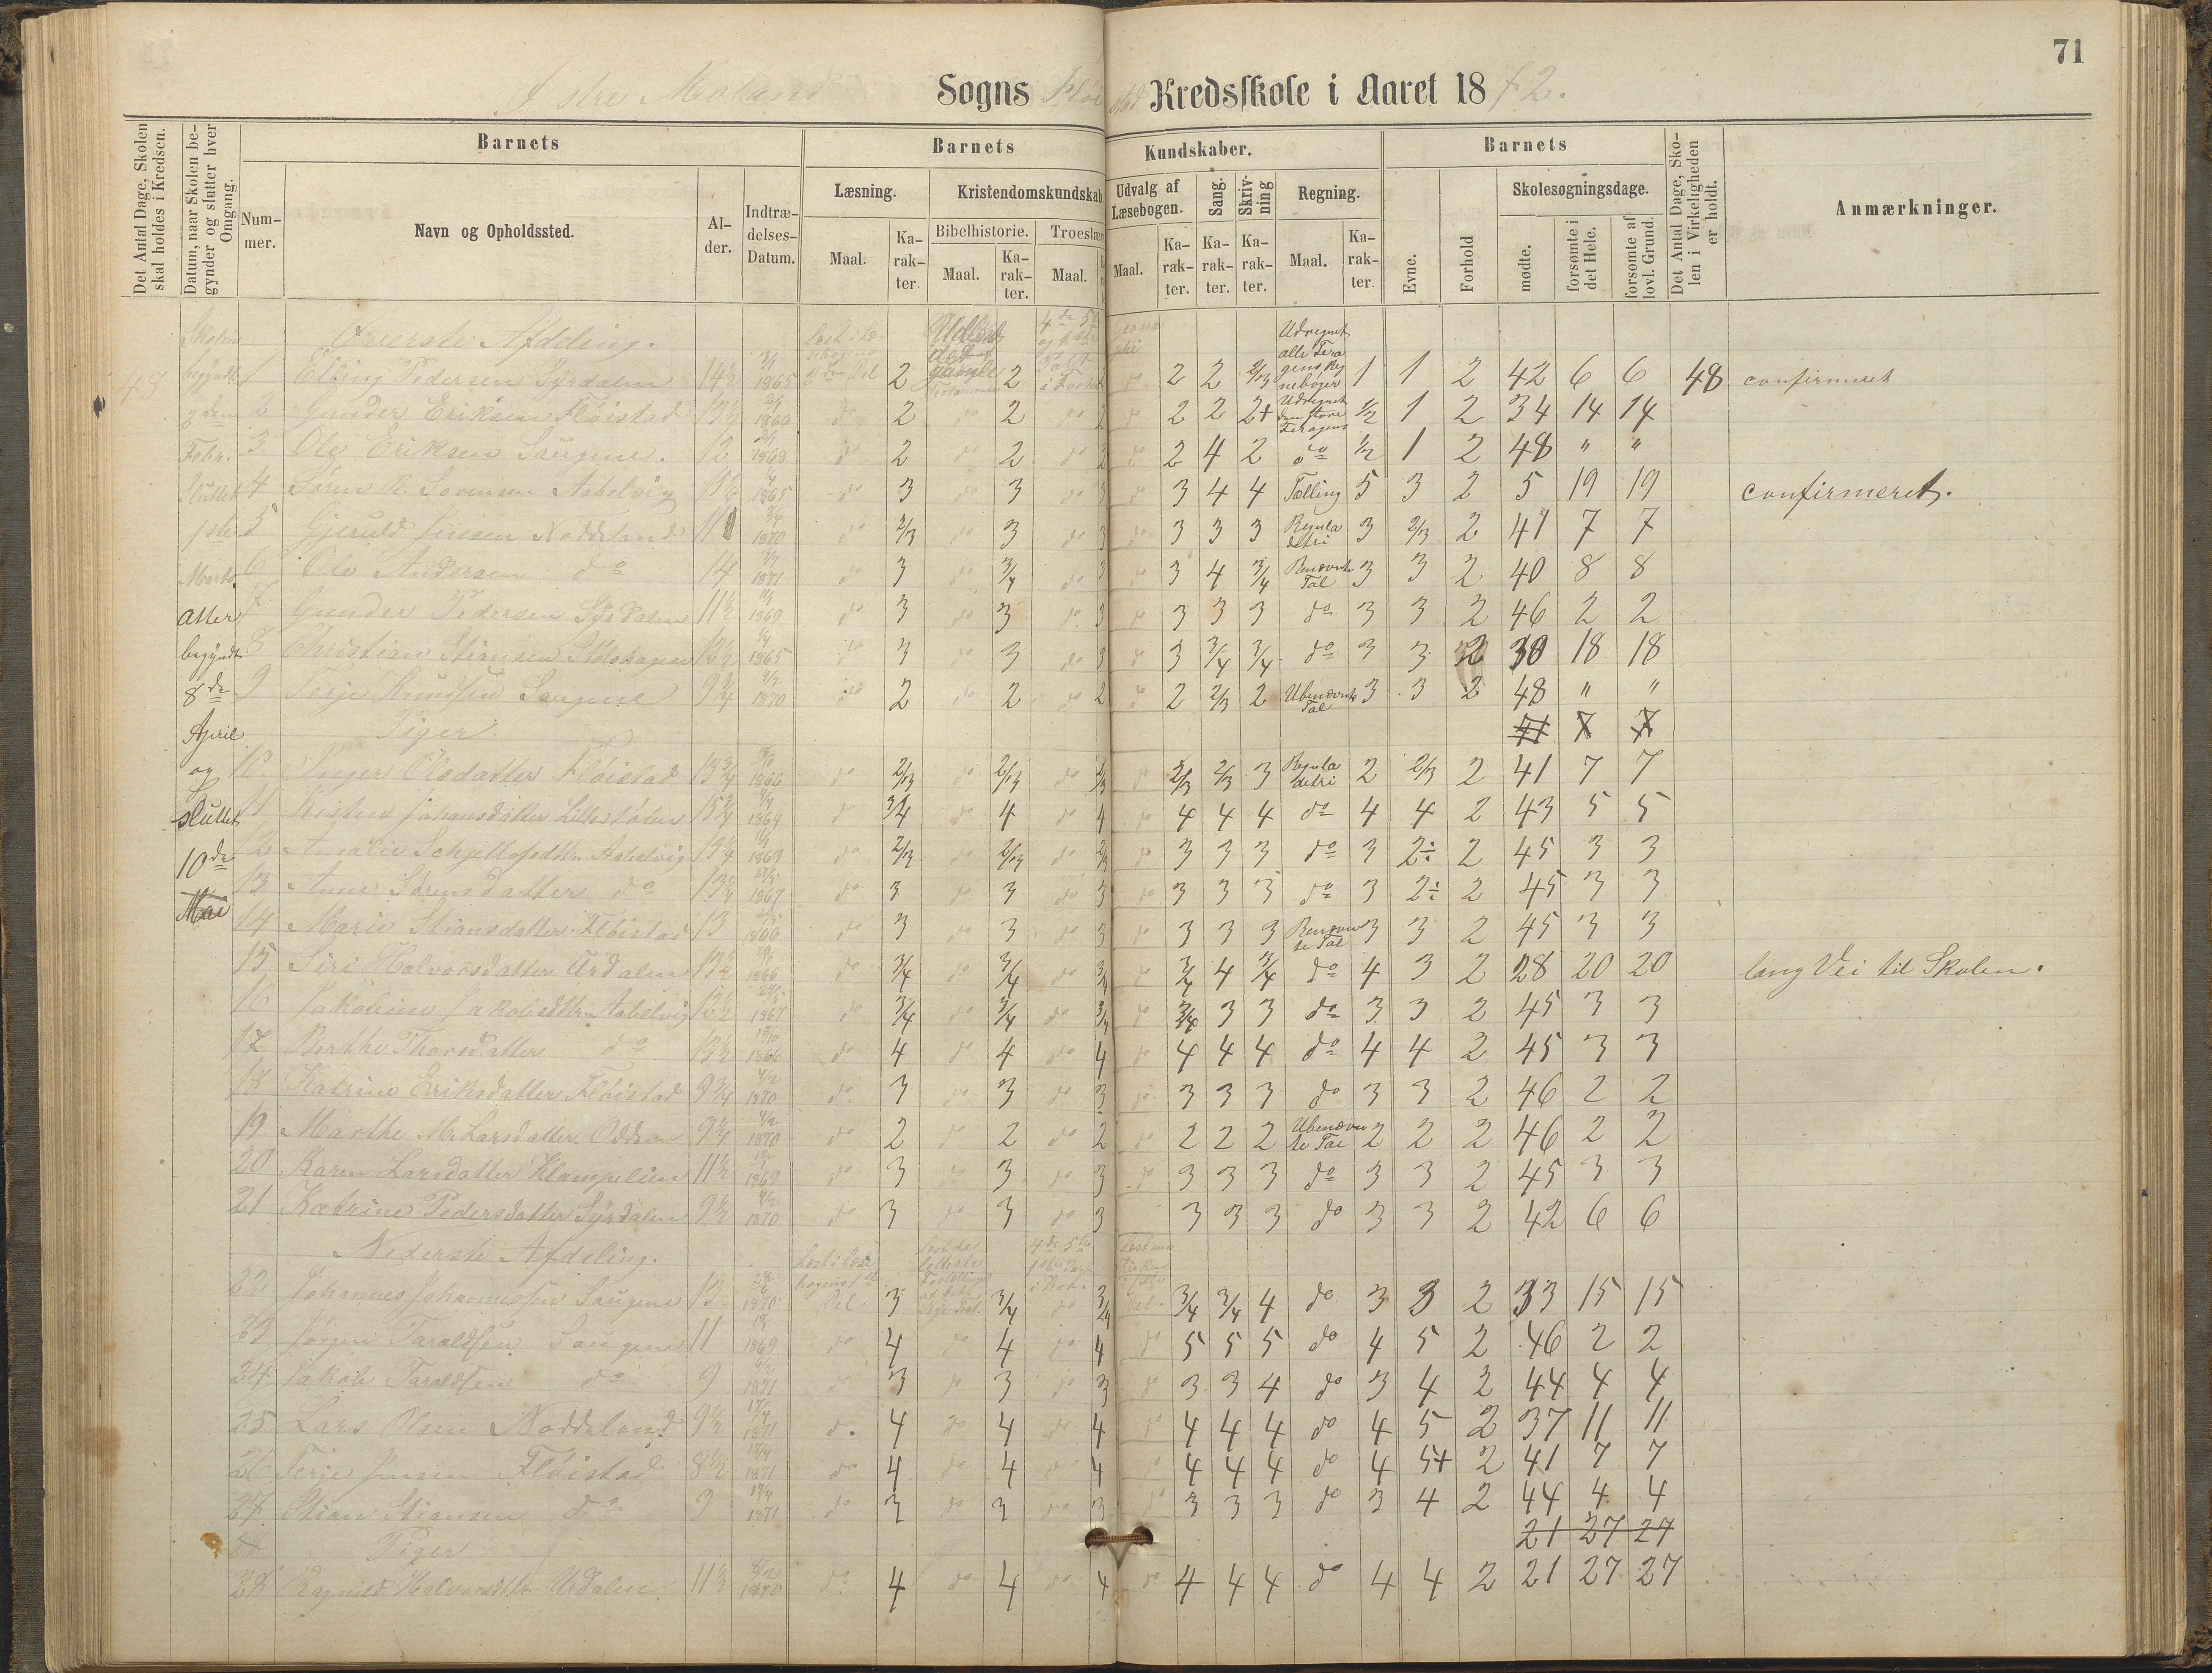 71
Østre Moland Sogns Flöistad Kredsskole i Aaret 1872.
Det Antal Dage, Skolen skal holdes i Kredsen.
Datum, naar Skolen begynder og slutter hver Omgang.
Barnets
Nummer.
Navn og Opholdssted.
Alder.
Indtrædelses-Datum.
Barnets Kundskaber.
Læsning.
Maal.
Karakter.
Kristendomskundskab.
Bibelhistorie.
Maal.
Karakter.
Troeslære
Maal.
Udvalg af Læsebogen.
Maal.
Karakter.
Sang.
Karakter.
Skrivning
Karakter.
Regning.
Maal.
Karakter.
Barnets
Evne.
Forhold
Skolesøgningsdage.
mødte.
forsømte i det Hele.
forsømte af lovl. Grund.
Det Antal Dage, Skolen i Virkeligheden er holdt.
Anmærkninger.
48
Skolen
begyndt
Febr.
Sluttet
1ste
Marts
atter
begyndt
8de
April
og
sluttet
10de
Mai
Överste Afdeling.
1 Elling Pedersen Syrdalen 14½ 1865 2 2 do 2 2 2/3 Udregnet alle Feragens Regnebøger 1 1 2 42 6 6 48 confirmeret
2 Gunder Eriksen Flöistad 13½ 1866 do 2 do 2 do 2 do 2 2 2+ Udregnet den store Feragens 1/2 1 2 34 14 14
3 Ole Eriksen Saugene. 12 1868 do 2 do 2 do 2 do 2 4 2 do 1/2 1 2 48 " "
4 Sören Sorensen Aabelvig 1865 do 3 do 3 do 3 do 3 4 4 Tælling 5 3 2 5 19 19 confirmeret.
5 Gjeruld Jensen Noddeland 11 1870 do 2/3 do 3 do 3 do 3 3 3 Regula detri 3 2/3 2 41 7 7
6 Ole Andersen do 14 1871 do 3 do 3/4 do 3 do 3 4 3/4 Benævnte Tal 3 3 2 40 8 8
7 Gunder Pedersen Syrdalen 11½ 1869 do 3 do 3 do 3 do 3 3 3 do 3 3 2 46 2 2
8 Christian Stiansen 1865 do 3 do 3 do 3 do 3 3/4 3/4 do 3 3 2 30 18 18
9 Terje Knudsen Saugene 9¾ 1870 do 2 do 2 do 2 do 2 2/3 2 Ubenævnte Tal 3 3 2 48 " "
Piger. 41 7 7
10 Inger Olsdatter Flöistad 13¾ 1866 do 2/3 do 2/3 do 2/3 do 2/3 2/3 3 Regula detri 2 2/3 2 41 7 7
11 Johansdatter 15¾ 1864 do 3/4 do 4 do 4 do 4 4 4 do 4 4 2 43 5 5
12 Amalie Aabelvig 1869 do 2/3 do 2/3 do 2/3 do 3 3 3 do 3 2÷ 2 45 3 3
13 Anne Sörensdatter do 13½ 1867 do 3 do 3 do 3 do 3 3 3 do 3 2÷ 2 45 3 3
14 Marie Stiansdatter Flöistad 13 1866 do 3 do 3 do 3 do 3 3 3 Benævnte Tal 3 3 2 45 3 3
15 Siri Halvorsdatter Urdalen 13½ 1866 do 3/4 do 3/4 do 3/4 do 3/4 4 3/4 do 4 3 2 28 20 20 lang Vei til Skolen.
16 Jakobine Jakobsdttr Aabelvig 1867 do 3/4 do 3/4 do 3/4 do 3/4 3 3 do 3 3 2 45 3 3
17 Berthe Thorsdatter do 1866 do 4 do 4 do 4 do 4 4 4 do 4 4 2 45 3 3
18 Katrine Eriksdatter Flöistad 9¾ 1870 do 3 do 3 do 3 do 3 3 3 do 3 3 2 46 2 2
19 Marthe M. Larsdatter Odden 1870 do 2 do 2 do 2 do 2 2 2 Ubenævnte Tal 2 2 2 46 2 2
20 Karen Larsdatter Klampelien 11½ 1869 do 3 do 3 do 3 do 3 3 3 do 3 3 2 45 3 3
21 Katrine Pedersdatter Syrdalen 9½ 1870 do 3 do 3 do 3 3 3 3 do 3 3 2 42 6 6
Nederste Afdeling.
22 Johannes Johannessen Saugene 13 1870 3 3/4 do 3/4 3/4 3/4 4 do 3 3 2 33 15 15
23 Jörgen Taraldsen Saugene 11 1869 do 4 do 4 do 4 do 5 5 5 do 4 5 2 46 2 2
24 Jakob Taraldsen do 9 1871 do 3 do 3 do 3 do 3 3 4 do 3 4 2 44 4 4
25 Lars Olsen Noddeland 9½ 1871 do. 4 do 4 do 4 do 4 4 4 do 4 5 2 37 11 11
26 Terje Jensen Flöistad 8½ 1871 do 4 do 4 do 4 do 4 4 4 do 4 5+ 2 41 7 7
27 Stian Stiansen do 9 1871 do 3 do 3 do 3 do 3 3 3 do 3 4 2 44 4 4
Piger 21 27 27
28 Ragnild Halvorsdttr Urdalen 11½ 1870 do 4 do 4 do 4 do 4 4 4 do 4 4 2 21 27 27